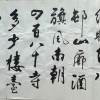 村山郭酒
旗風南朝
四百八十寺
多少樓臺